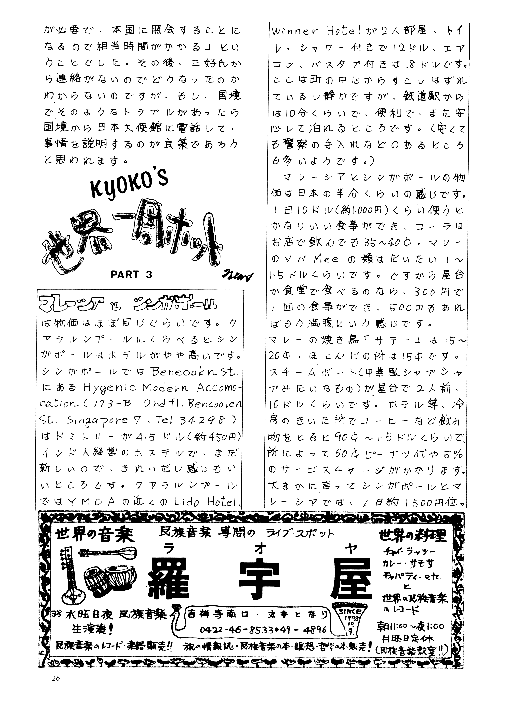 が必要で、本国に照会することに
なるので相当時間がかかるコとい
うことでした。その後、三好氏か
ら連絡がないのでどうなったのか
わからないのですが、もし、国境
でそのようなトラブルがあったら
国境から日本大使館に電話して、
事情を説明するのが良策であろう
と思われます。
KYOKO'S
世界一周ホット
news
PART 3
マレーシア と シンガポール
は物価はほぼ同じぐらいです。ク
アラルンプールにくらべるとシン
ガポールはホテルがやや高いです。
シンガポールでは Bencoolen St.
にある Hygenic Modern Accomo-
cation (173-B 2nd fl. Bencoolen
St. Singapore 7. Tel 34298)
はドミトリーが4.5ドル(約450円)
インド人経営のホステルで、まだ
新しいので、きれいだし感じもい
いところです。クアラルンプール
ではYMCAの近くの Lido Hotel.
Winner Hotel が2人部屋、トイ
レ、シャワー付きで12ドル、エア
コン、バスタブ付きは18ドルです。
ここは町の中心から少しはずれ
ているし静かですが、鉄道駅から
は10分くらいで、便利で、また安
心して泊れるところです。(安くて
も警察の手入れなどのあるところ
も多いようです。)
マレーシアとシンガポールの物
価は日本の半分くらいの感じです。
1日10ドル(約1,000円)くらい使うと
かなりいい食事ができ、コーラは
お店で飲んでも35~40¢、マレー
1.5ドルくらいです。ですから屋台
か食堂で食べるのなら、300円で
1回の食事ができ、500円もあれ
ばもう満腹という感じです。
マレーの焼き鳥「サテー」は15~
20¢、ほとんどの所は15¢です。
10ドルくらいです。ホテル等、冷
房のきいた所でコーヒーなど飲み
物をとると90¢~1.5ドルくらいで
のサービスチャージがかかります。
大まかに言ってシンガポールとマ
レーシアでは、1日約1,500円位。
世界の音楽
民族音楽 専門の ライブ・スポット
ラ オ ヤ
羅 宇 屋
世界の料理
チャイ・ラッシー
カレー・サモサ
チャパティー etc.
と
世界の民族音楽
のレコード
水曜日夜 民族音楽
生演奏!
吉祥寺南口・丸井となり
0422-46-8533•49-4896
SINCE
1978
朝11:00~夜1:00
月曜日定休
(民族音楽教室!!)
民族音楽のレコード・楽器販売!!
旅の情報誌・民族音楽の本・瞑想・哲学の本販売!
26